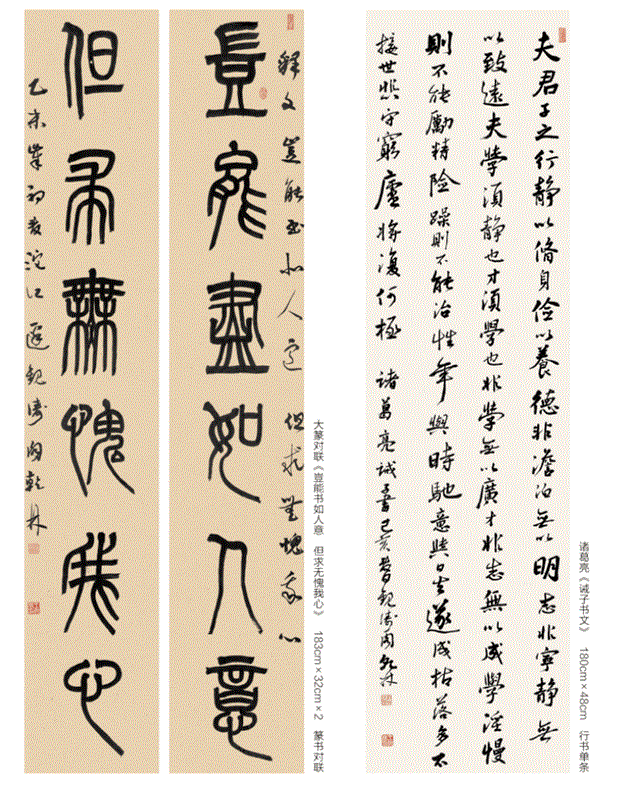 夫君子之行静以脩身俭以養德非澹泊無以明志非寧静無
以致遠夫學須静也才須學也非學無以廣才非志無以成學淫慢
則不能勵精险躁則不能治性年與時馳意與日去遂成枯落多不
接世悲守窮廬將復何極 诸葛亮诫子書己亥春
诸葛亮《诫子书文》 180cm×48cm 行书单条
釋文 豈能尽如人意 但求無愧我心
豈能盡如人意
但求無愧我心
乙未岁初春沱江
大篆对联《豈能书如人意 但求无愧我心》 183cm×32cm×2 篆书对联